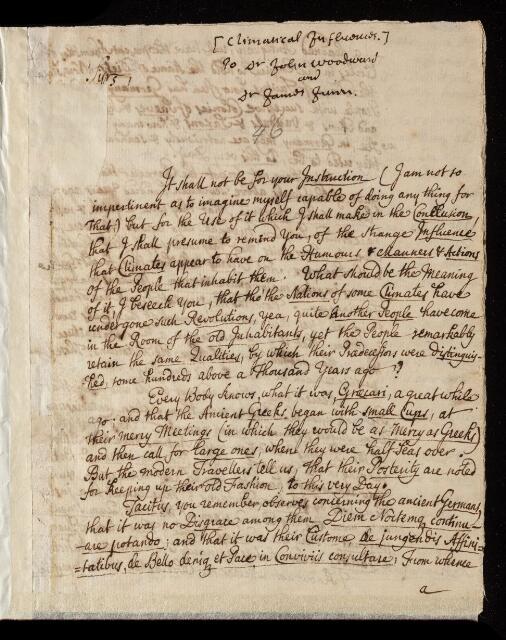 [Climatical Influences.]
To Dr John Woodward
and
Dr James Jurin.
46
It shall not be for your Instruction (I am not so
impertinent as to imagine myself capable of doing any thing for
That) but for the Use of it which I shall make in the Conclusion,
that I shall presume to remind You, of the strange Influence
that Climates appear to have on the Humours & Manners & Actions
of the People that inhabit them. What should be the Meaning
of it, I beseech You, that tho' the Nations of some Climates have
undergone such Revolutions, yea, quite another People have come
in the Room of the old Inhabitants, yet the People remarkably
retain the same Qualities, by which their Prædecessors were distingui-
shed, some hundreds above a Thousand Years ago ??
Every Body knows, what it was, Græcari, a great while
ago; and that the Ancient Greeks, began with small Cups, at
their Merry Meetings (in which they would be as Merry as Greeks)
and then call for large ones, when they were half seas over.
But the modern Travellers tell us, That their Posterity are noted
for keeping up their old Fashion, to this very Day.
Tacitus, you remember observes concerning the ancient Germans,
that it was no Disgrace among them Diem Noctemq continu-
-are potando; and that it was their Custome, de jungendis Affini=
=tatibus, de Bello deniq et Pace, in Conviviis consultare; From whence
a